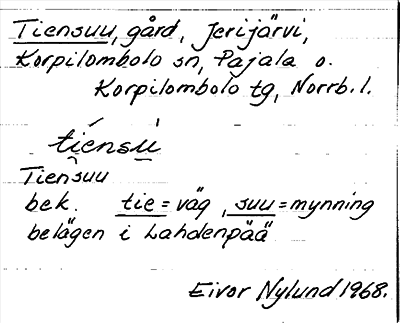 Tiensuu, gård, Jerijärvi,
Korpilombolo sn, Pajala o.
Korpilombolo tg, Norrb. l.
tíensú
Tiensuu
bek. tie = väg, suu = mynning
belägen i Lahdenpää
Eivor Nylund 1968.